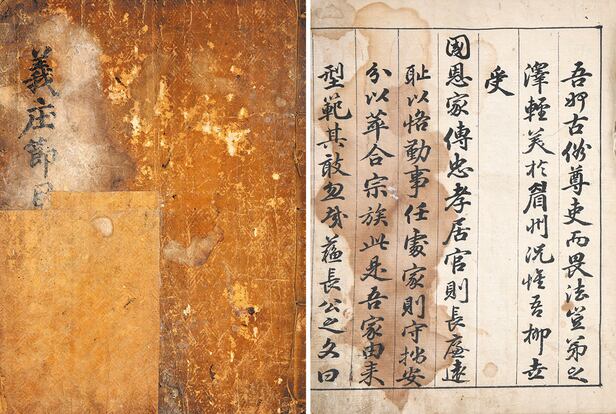 義庄節目
吾州古俗尊吏而畏法豈第之
澤輕美於眉州況惟吾柳世
受
國恩家傳忠孝居官則長廉遠
恥以恪勤事任處家則守拙安
分以萃合宗族此是吾家由来
型範其敢忽哉蘇長公之文曰